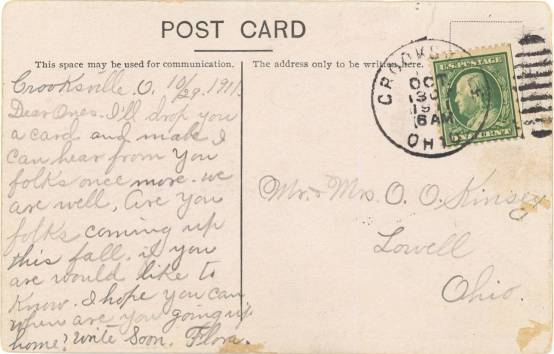 POST CARD
This space may be used for communication.
The address only to be written here.
Crooksville, O. 10/29. 1911.
Dear Ones. I'll drop you
a card and make I
can hear from you
folks once more. we
are well, Are you
folks coming up
this fall. if you
are would like to
know. I hope you can
when are you going up
home? Write Soon. Flora.
CROOKS
OCT
30
6 AM
OHIO
U.S. POSTAGE
ONE CENT
Mr. & Mrs. O. O. Kinsey
Lowell
Ohio.